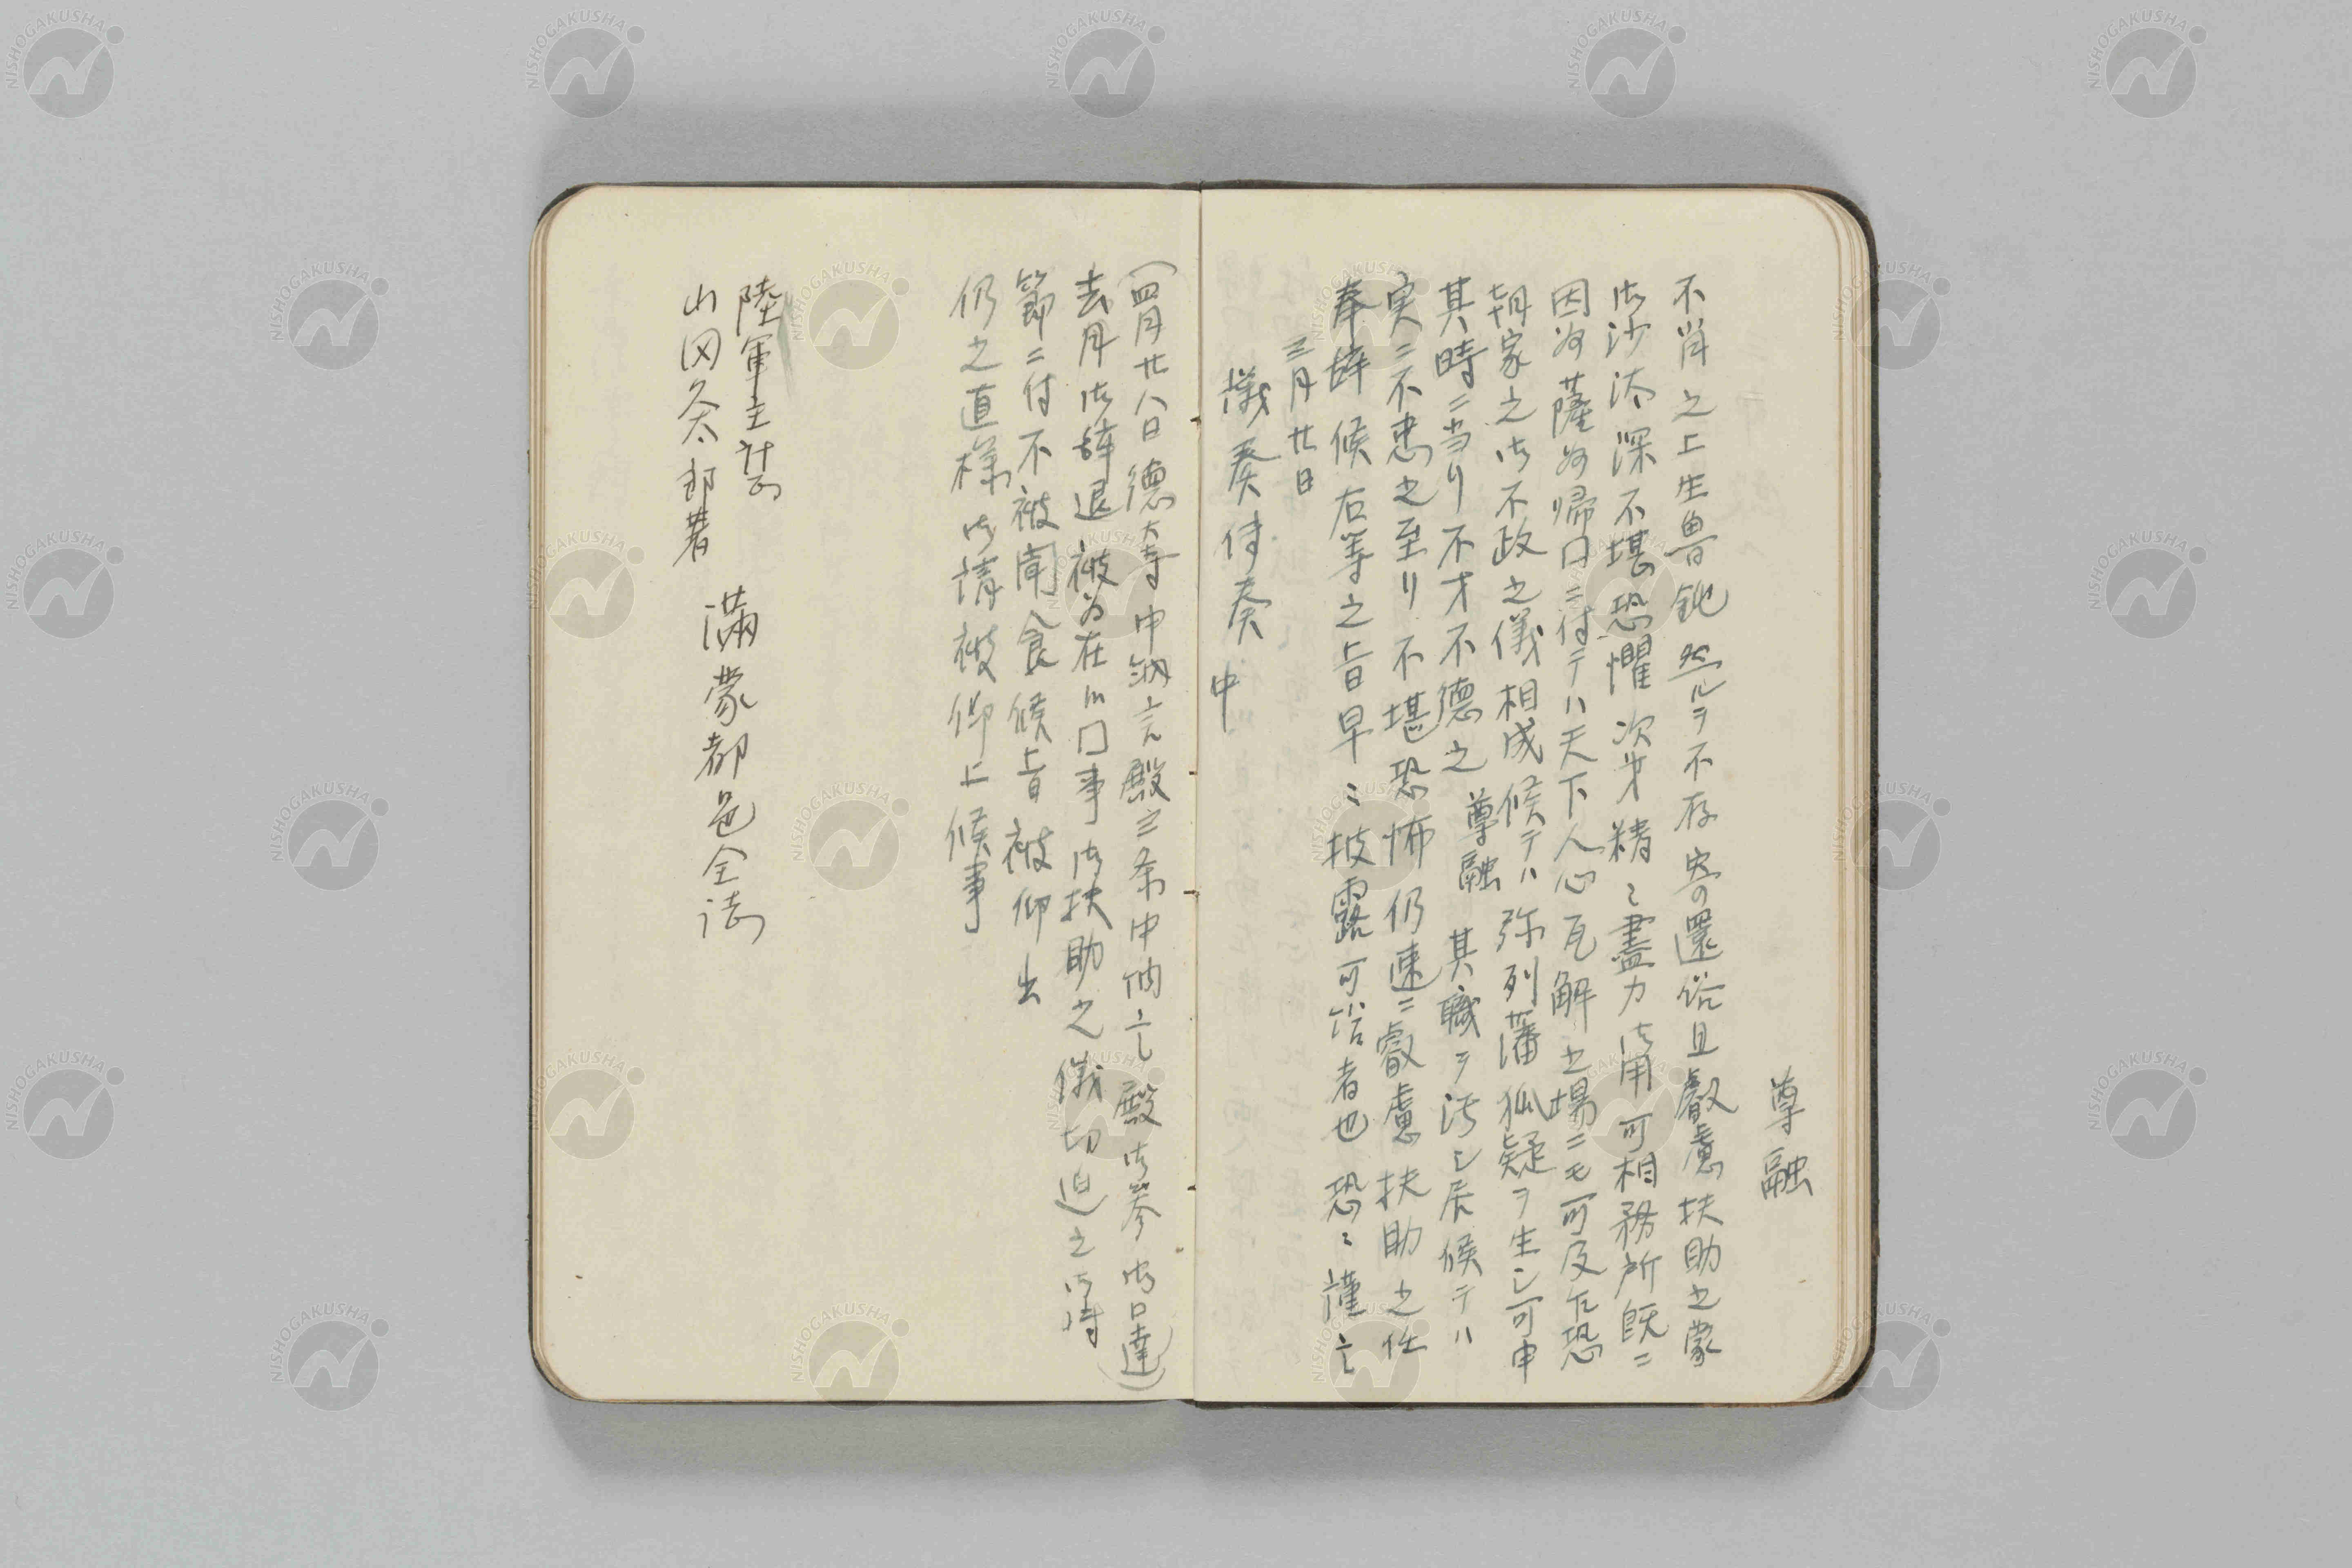 尊融
不肖之上生魯鈍然ルヲ不存寄還俗且叡慮扶助之蒙
御沙汰深不堪恐懼次才精〻盡力御用可相務所既ニ
因為薩為帰国ニ付テハ天下人心瓦解之場ニモ可及乍恐
朝家之御不政之儀相成候テハ弥列藩狐疑ヲ生シ可申
其時ニ当リ不才不徳之尊融其職ヲ汚シ居候テハ
実ニ不忠之至リ不堪恐怖仍速ニ叡慮扶助之任
奉辞候右等之旨早〻披露可給者也恐〻謹言
三月廿日
議奏伝奏中
(四月廿八日徳大寺中納言殿三条中納言殿御参御口達)
去月御辞退被為在御国事御扶助之儀切迫之御時
節ニ付不被聞食候旨被仰出
仍之直様御請被仰上候事
陸軍主計
山冈灸太郎著
満蒙都邑全誌
NISHOGAKUSHA